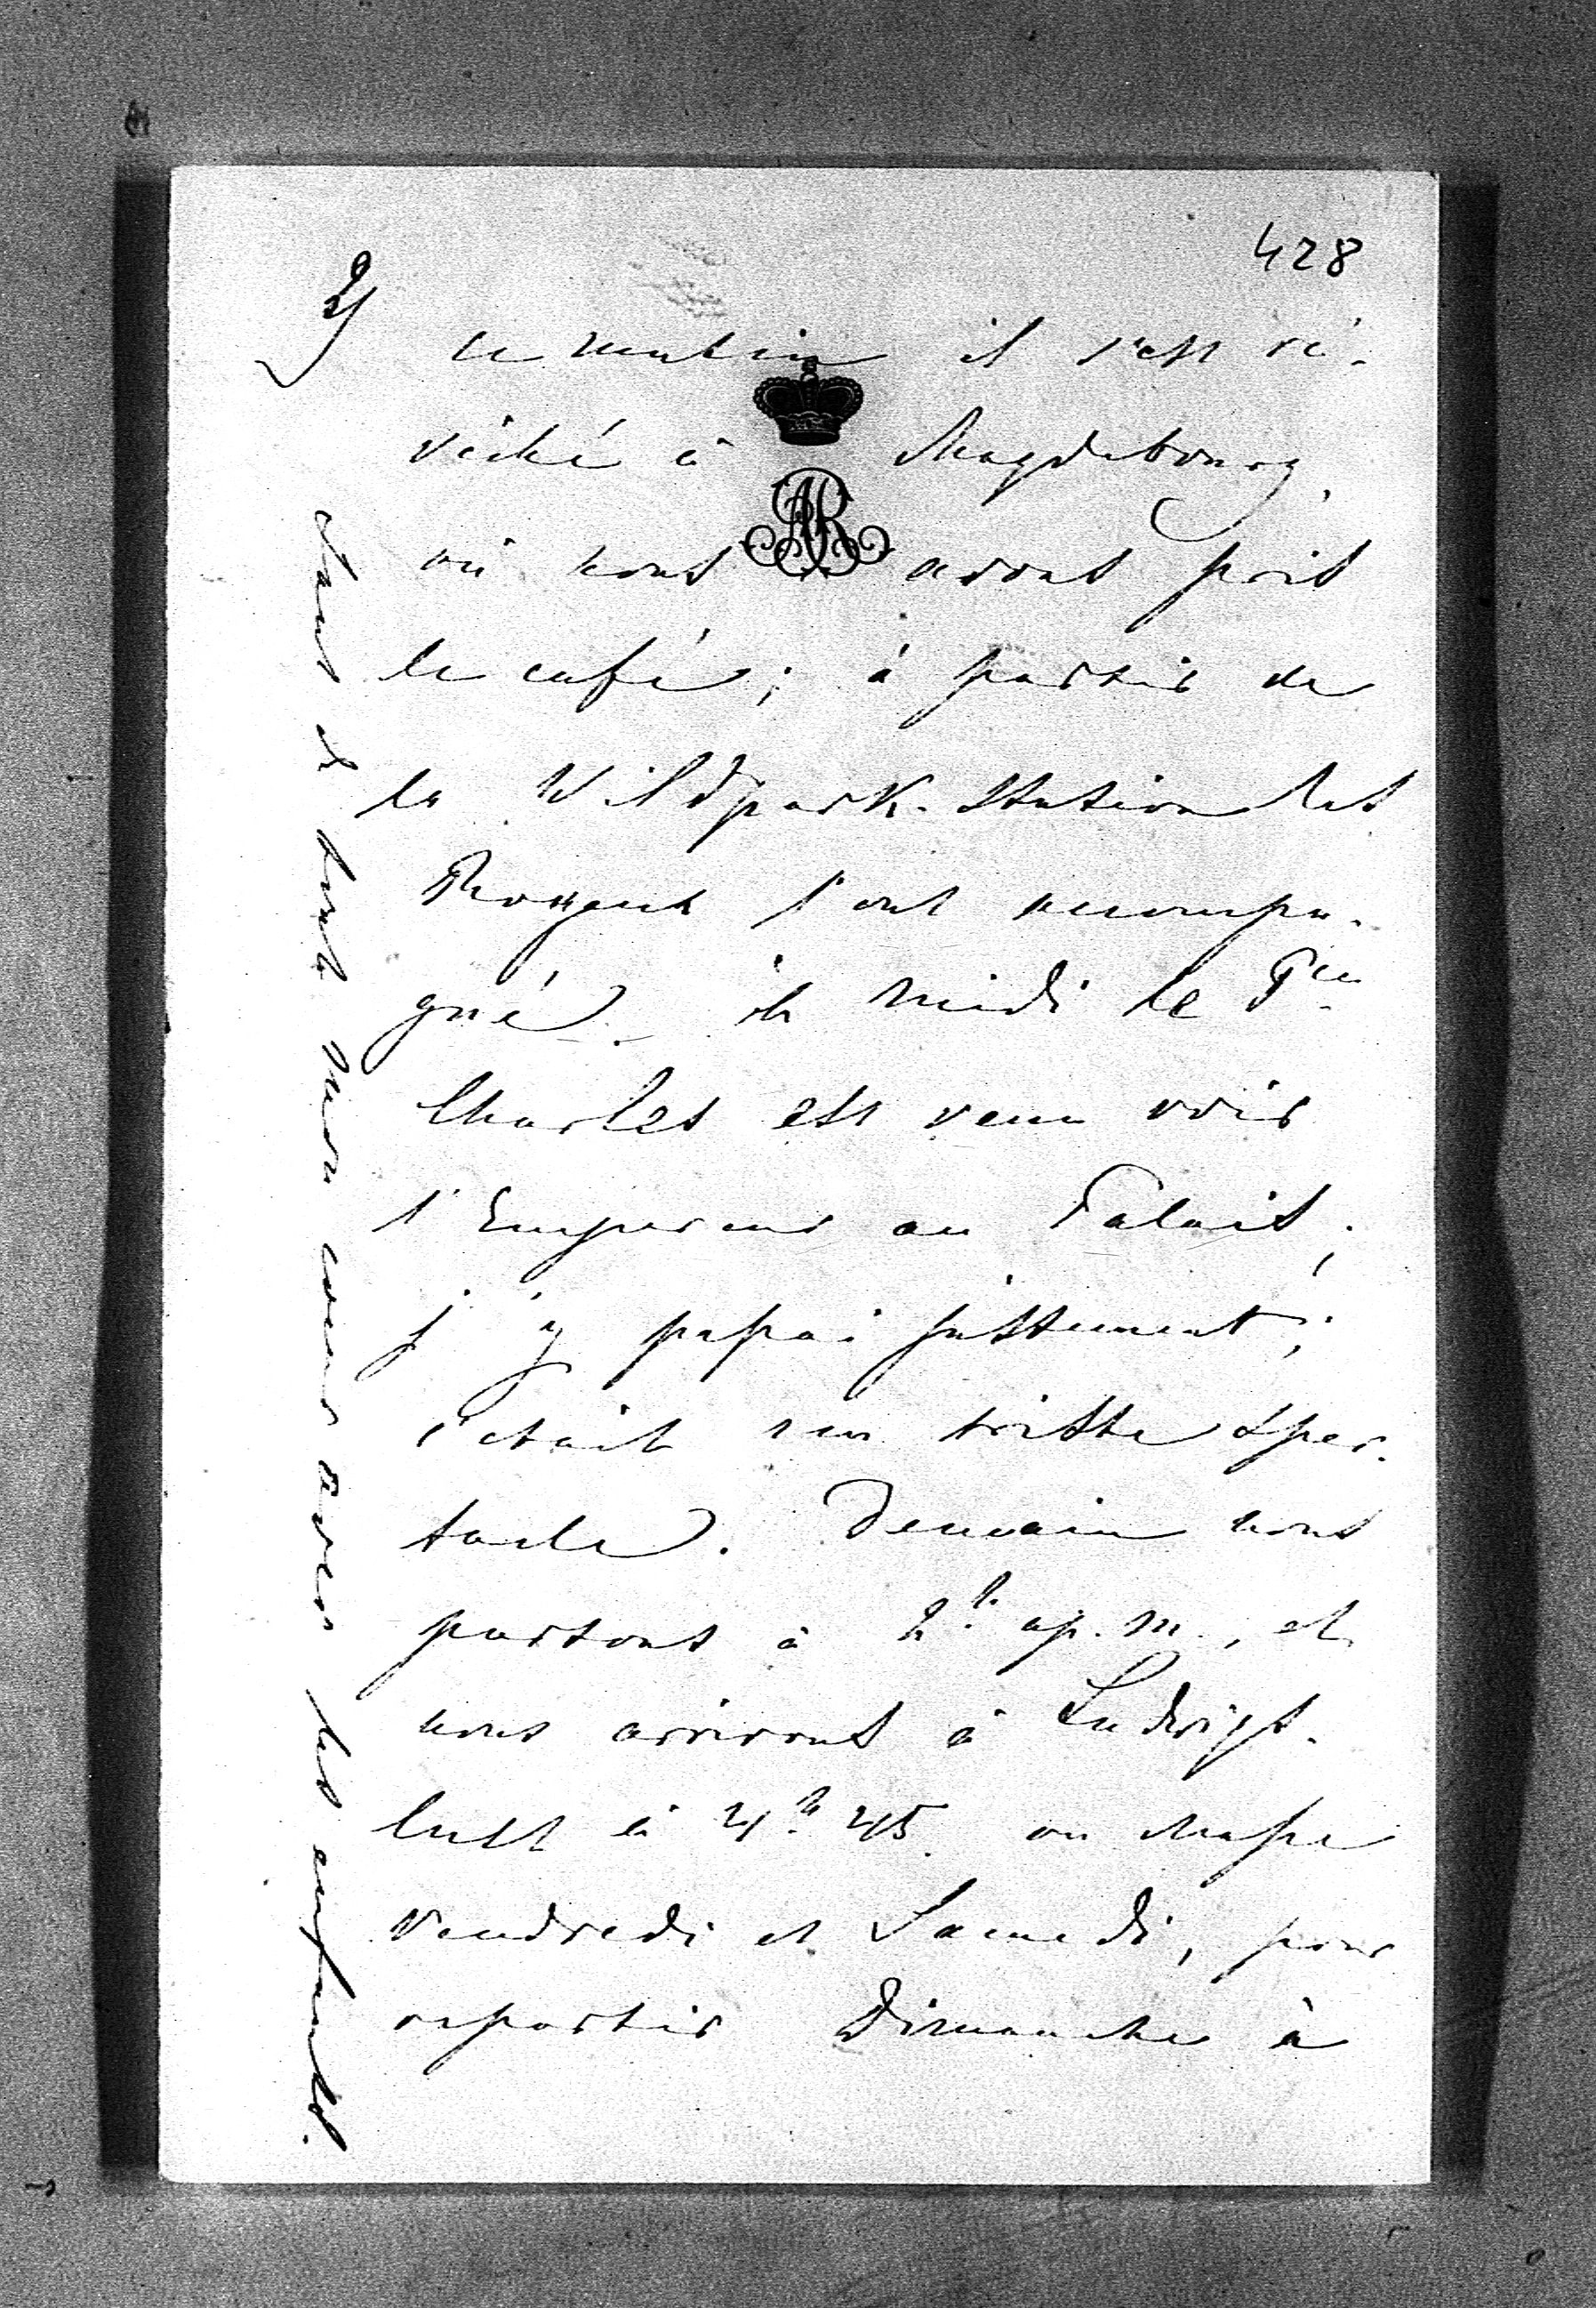 428
2)
ce matin il s'est ré-
veillé à Magdebourg,
où nous avons pris
le café; à partir de
la Wildpark-Station les
Royaux l'ont accompa-
gné. À midi le Pce
Charles est venu voir
l'Empereur au Palais;
j'y passai justement;
c'était un triste spec-
tacle. Demain nous
partons à 2h ap. m., et
nous arrivons à Ludwigs-
lust à 4h 45. on chasse
Vendredi et Samedi, pour
repartir Dimanche à
de tout mon cœur avec les enfants.